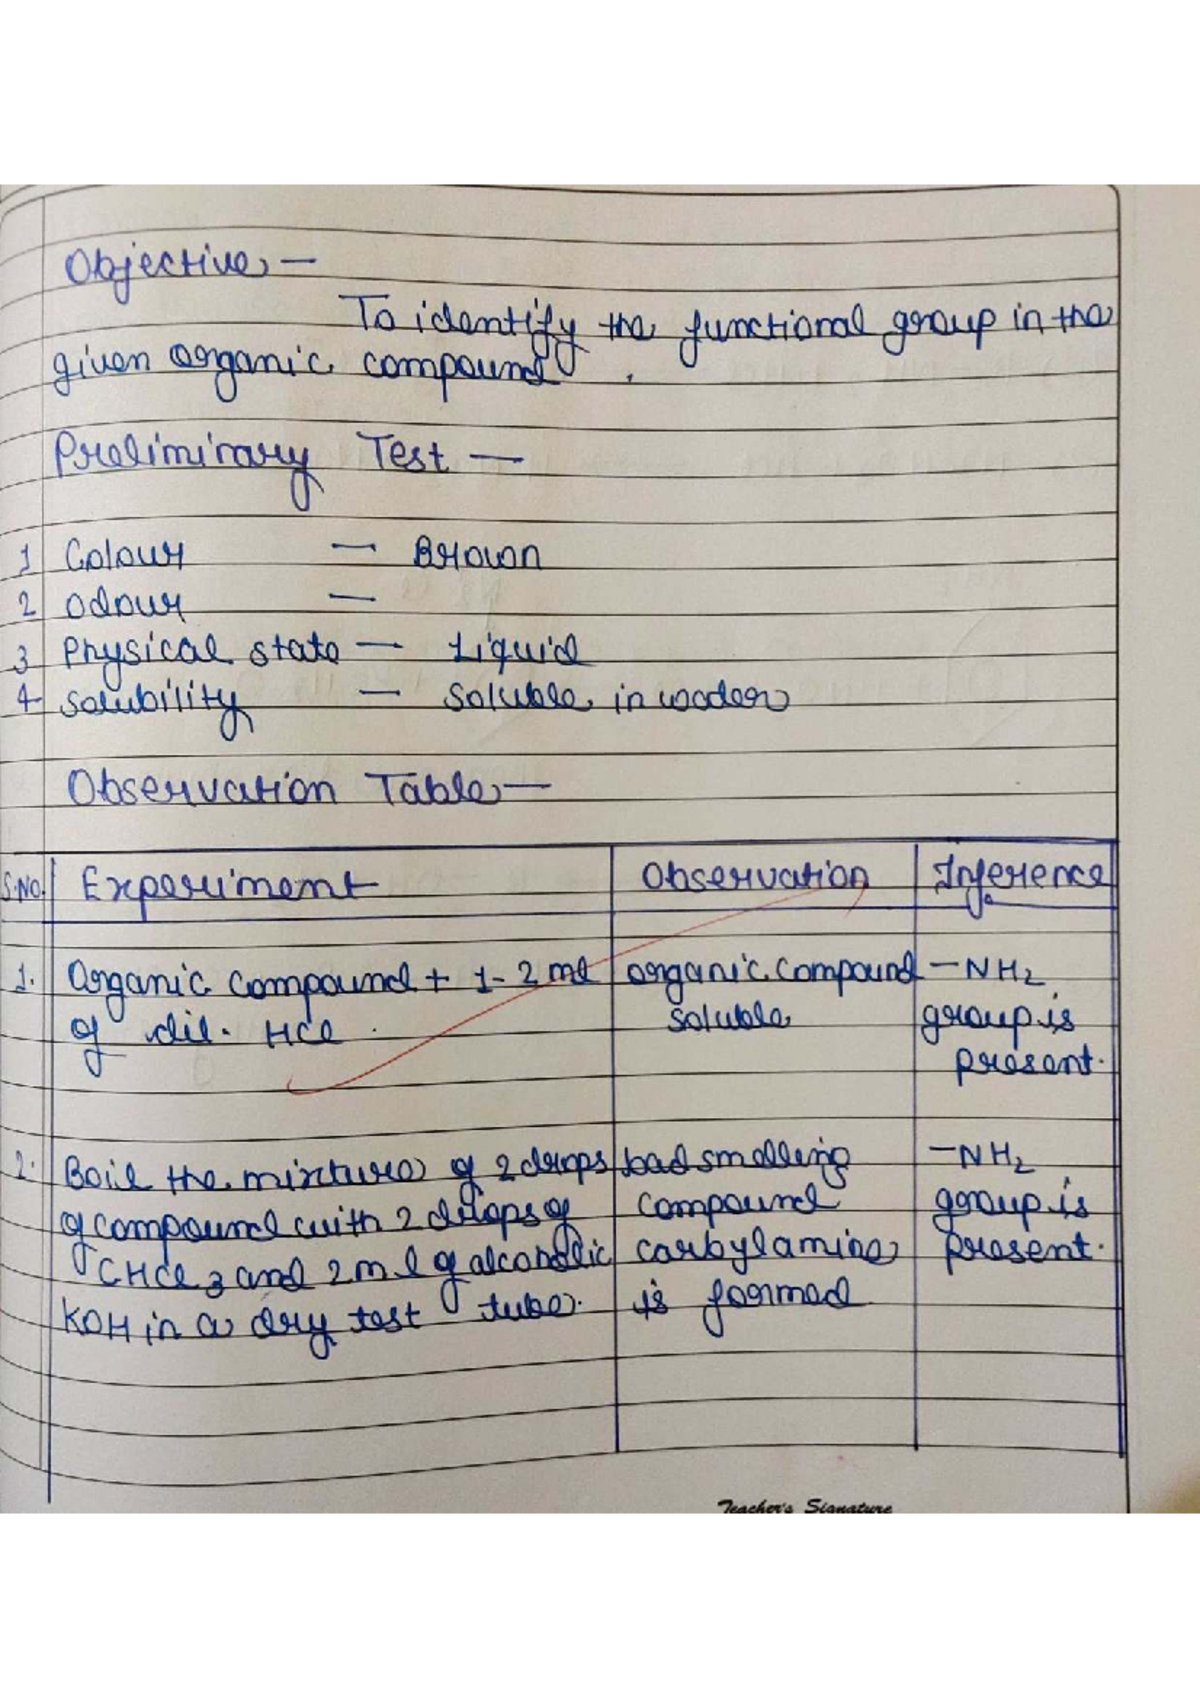 Objective —
To identify the functional group in the
given organic compound .
Preliminary Test —
1 Colour — Brown
2 odour —
3 Physical state — Liquid
4- Solubility — Soluble in wader
Observation Table —
S.NO. Experiment Observation Inference
1. Organic compound + 1-2 ml organic compound -NH2
of dil. HCl. soluble group is
present.
2. Boil the mixture of 2 drops bad smelling -NH2
of compound with 2 drops of compound group is
CHCl3 and 2 ml of alcoholic carbylamine present.
KOH in a dry test tube. is formed
Teacher's Signature